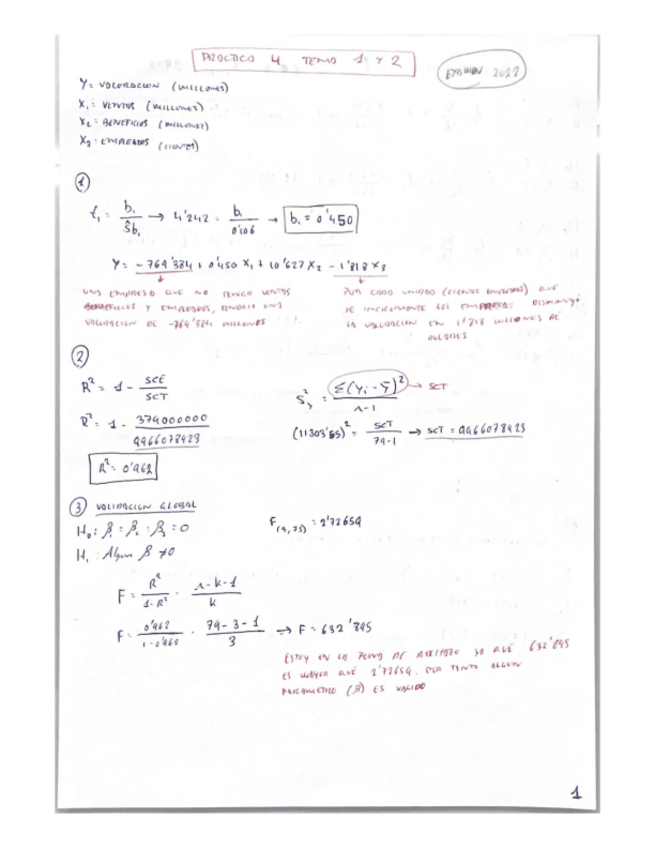 PRACTICO 4 TEMA 1 Y 2
EXAMEN 2022
Y = VALORACION (MILLONES)
X₁ = VENTAS (MILLONES)
X₂ = BENEFICIOS (MILLONES)
X₃ = EMPLEADOS (CIENTOS)
①
t₁ = b₁/Sb₁ → 4'242 = b₁/0'106 → b₁ = 0'450
Y = -769'384 + 0'450 X₁ + 10'627 X₂ - 1'818 X₃
UNA EMPRESA QUE NO TENGA VENTAS
BENEFICIOS Y EMPLEADOS, TENDRIA UNA
VALORACION DE -769'384 MILLONES
POR CADA UNIDAD (CIENTOS EMPLEADOS) QUE
SE INCREMENTE LOS DISMINUYE
LA VALORACION EN MILLONES DE
DOLARES
②
R² = 1 - SCE/SCT
R² = 1 - 379000000/9966078923
R² = 0'962
S²y = Σ(Yi - Ȳ)²/n-1 → SCT
(11303'55)² = SCT/79-1 → SCT = 9966078923
③ VALIDACION GLOBAL
H₀: β₁ = β₂ = β₃ = 0
H₁: Algun β ≠ 0
F = R²/1-R² · n-k-1/k
F = 0'962/1-0'962 · 79-3-1/3 → F = 632'895
ESTOY EN LA ZONA DE RECHAZO YA QUE 632'895
ES MAYOR QUE 2'72654. POR TANTO ALGUN
PARAMETRO (β) ES VALIDO
1